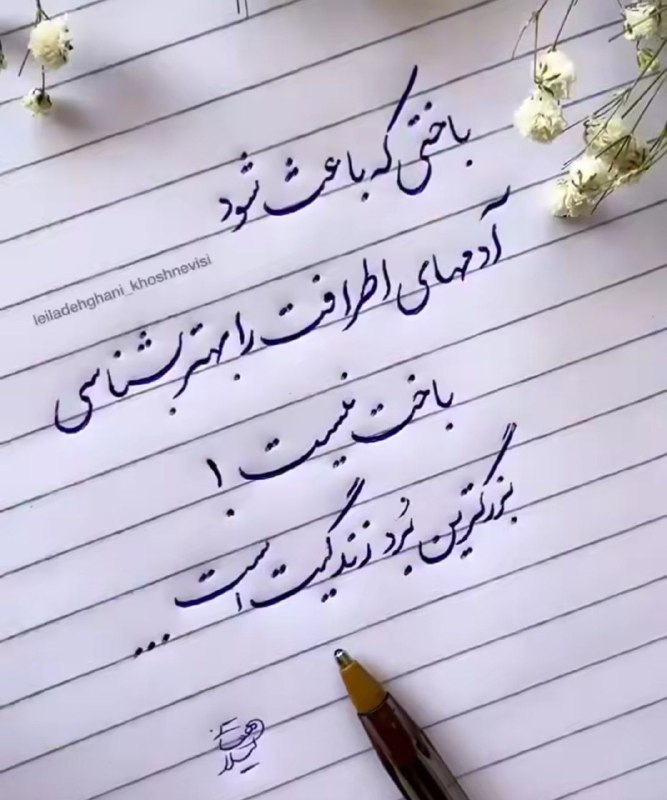 باختی که باعث شود
آدمهای اطرافت را بهتر بشناسی
باخت نیست !
بزرگترین بُرد زندگیت است...
leiladehghani_khoshnevisi